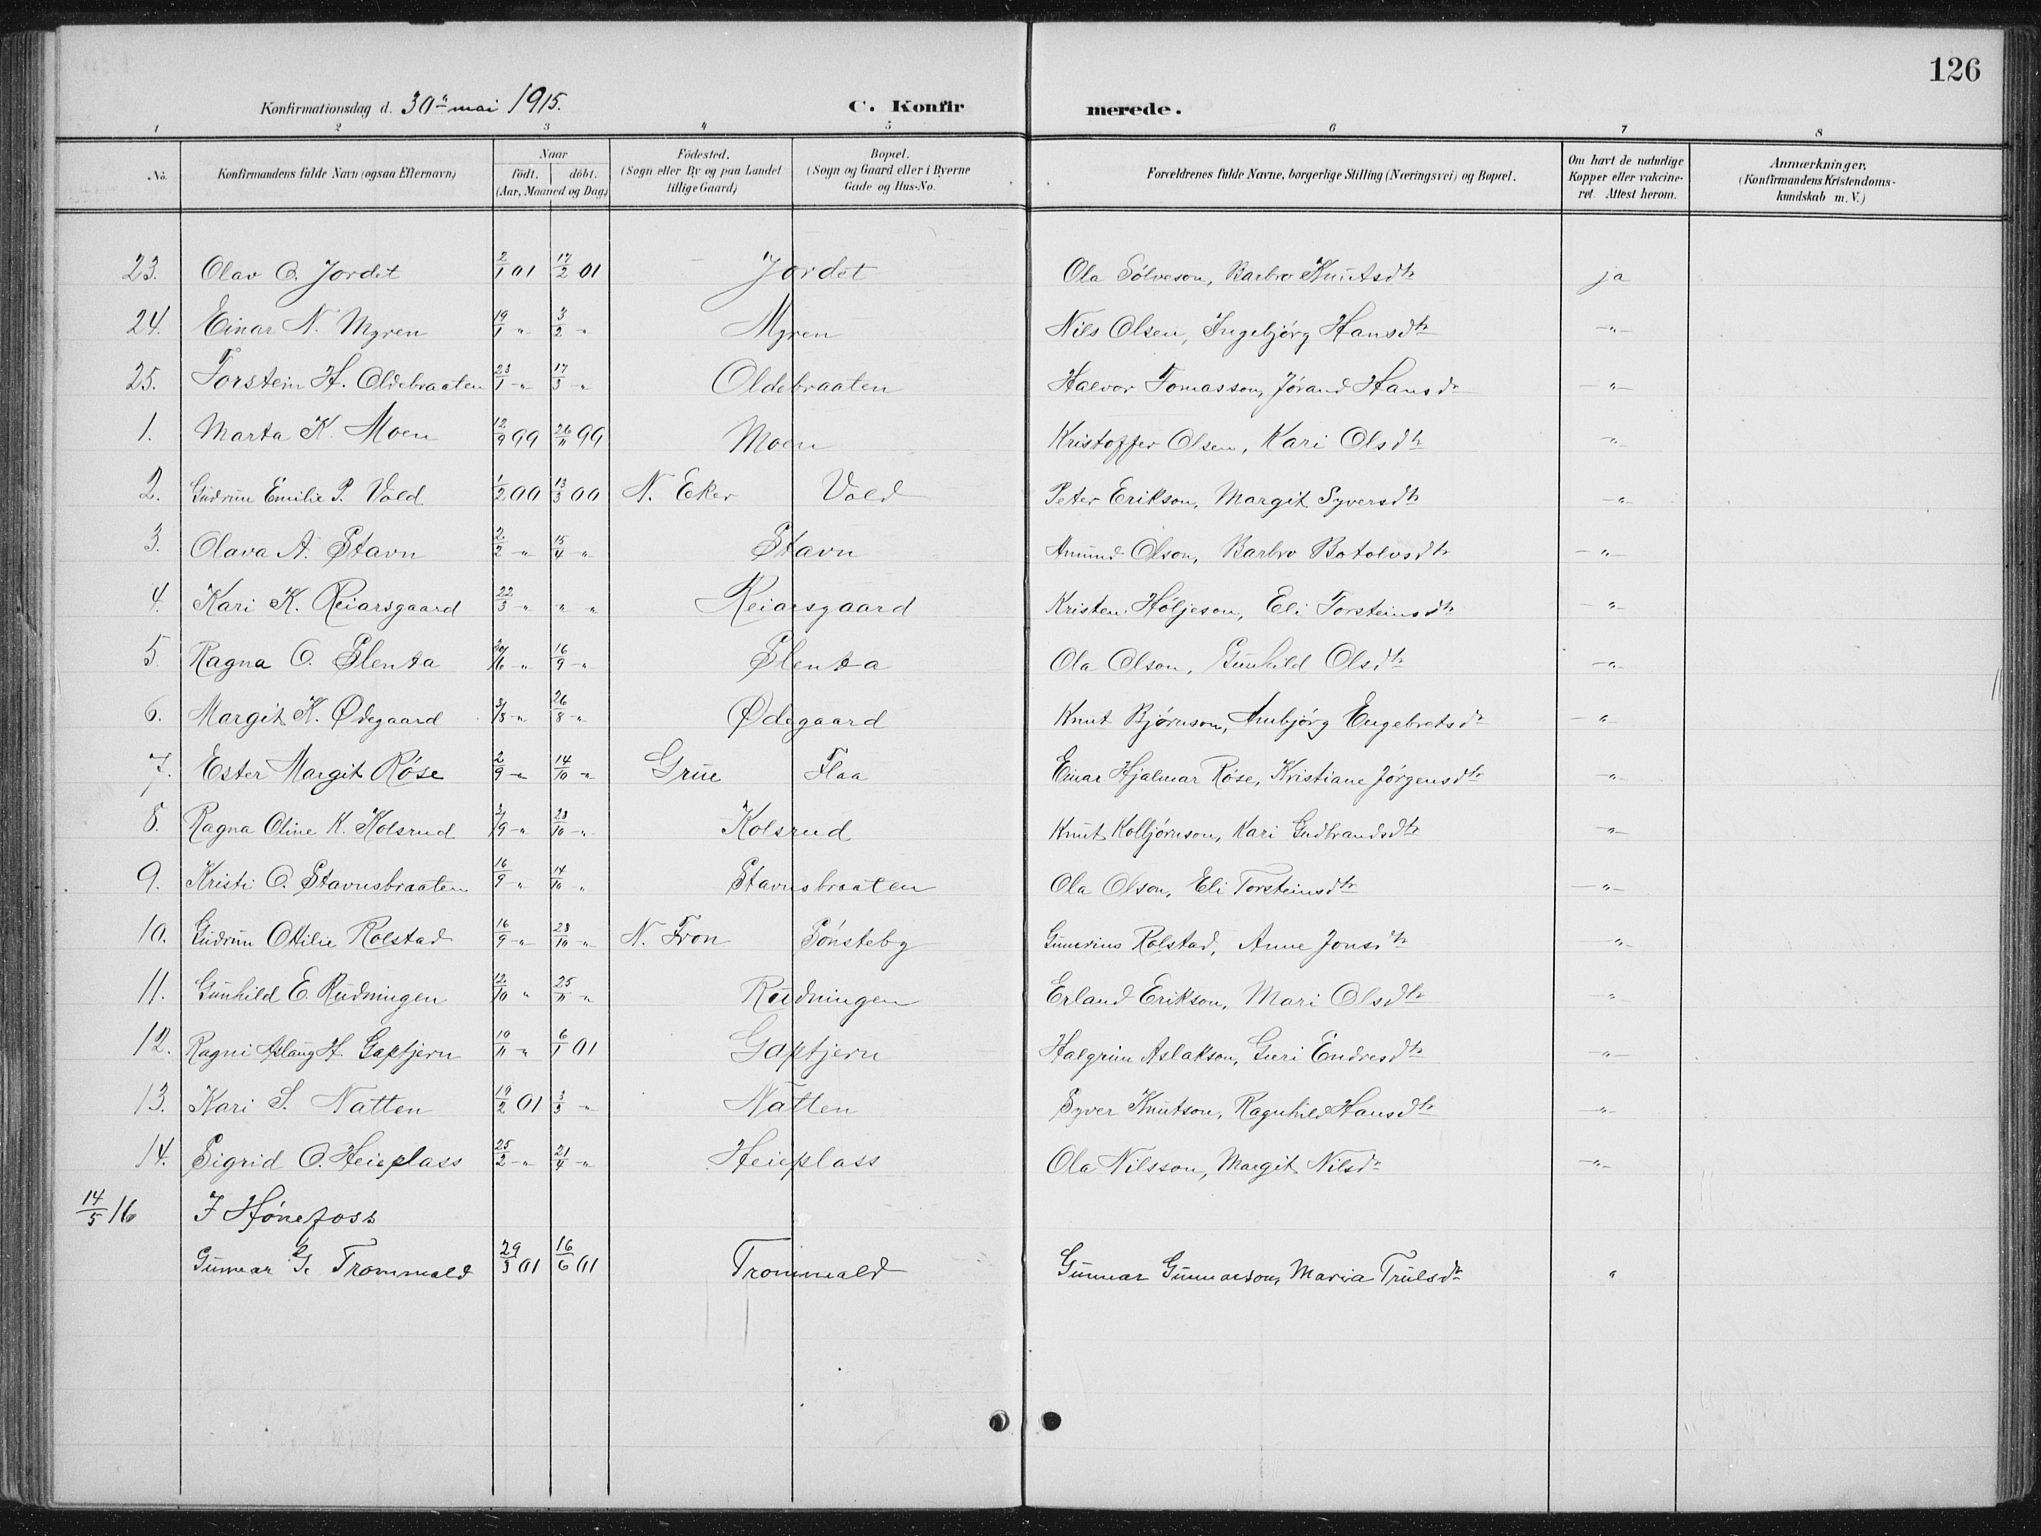 126
Konfirmationsdag d. 30" mai 1915. C. Konfirmerede.
1 2 3 4 5 6 7 8
No. Konfirmandens fulde Navn (ogsaa Efternavn) Naar født. døbt. (Aar, Maaned og Dag) Fødested. (Sogn eller By og paa Landet tillige Gaard) Bopæl. (Sogn og Gaard eller i Byerne Gade og Hus-No. Forældrenes fulde Navne, borgerlige Stilling (Næringsvei) og Bopæl. Om havt de naturlige Kopper eller vakcineret. Attest herom. Anmærkninger, (Konfirmandens Kristendomskundskab m. V.)
23. Olav O. Jordet 2/1 01 17/2 01 Jordet Ola Sølveson, Barbro Knutsdtr ja
24. Einar N. Myren 19/1 " 3/2 " Myren Nils Olsen, Ingebjørg Hansdtr -"-
25. Torstein H. Oldebraaten 23/1 -" 17/3 " Oldebraaten Halvor Tomasson, Jørand Hansdr -"-
1. Marta K. Moen 12/9 99 26/11 99 Moen Kristoffer Olsen, Kari Olsdtr -"-
2. Gudrun Emilie P. Vold 1/2 00 13/3 00 N. Eker Vold Peter Erikson, Margit Syversdtr -"-
3. Olava A. Stavn 2/2 -" 15/4 " Stavn Amund Olson, Barbro Botolvsdtr -"-
4. Kari K. Reiarsgaard 22/3 -" " " Reiarsgaard Kristen Høljeson, Eli Torsteinsdtr -"-
5. Ragna O. Slenta /6 " 16/9 -" Slenta Ola Olson, Gunhild Olsdtr -"-
6. Margit K. Ødegaard -" 26/8 -" Ødegaard Knut Bjørnson, Ambjørg Engebretsdr -"-
7. Ester Margit Røse 2/9 -" 14/10 -" Grue Flaa Einar Hjalmar Røse, Kristiane Jørgensdtr -"-
8. Ragna Oline K. Kolsrud /9 -" 23/10 -" Kolsrud Knut Kolbjørnson, Kari Gudbrandsdtr -"-
9. Kristi O. Stavnsbraaten 16/9 -" 14/10 " Stavnsbraaten Ola Olson, Eli Torsteinsdtr -"-
10. Gudrun Otilie Rolstad 16/9 -" 28/10 -" N. Fron Sønsteby Gunerius Rolstad, Anne Jonsdtr -"-
11. Gunhild E. Rudningen 12/10 " 25/11 " Rudningen Erland Erikson, Mari Olsdtr "
12. Ragni Aslaug H. Gaptjern 19/11 -" 6/1 01 Gaptjern Halgrim Aslakson, Guri Endresdtr -"-
13. Kari S. Natten 19/2 01 3/3 -" Natten Syver Knutson, Ragnhild Hansdtr -"-
14. Sigrid O. Heieplass 25/2 -" 21/4 -" Heieplass Ola Nilsson, Margit Nilsdr -"-
14/5 16 I Hønefoss
Gunnar G. Trommald 29/3 01 16/6 01 Trommald Gunnar Gunnarson, Maria Trulsdr "